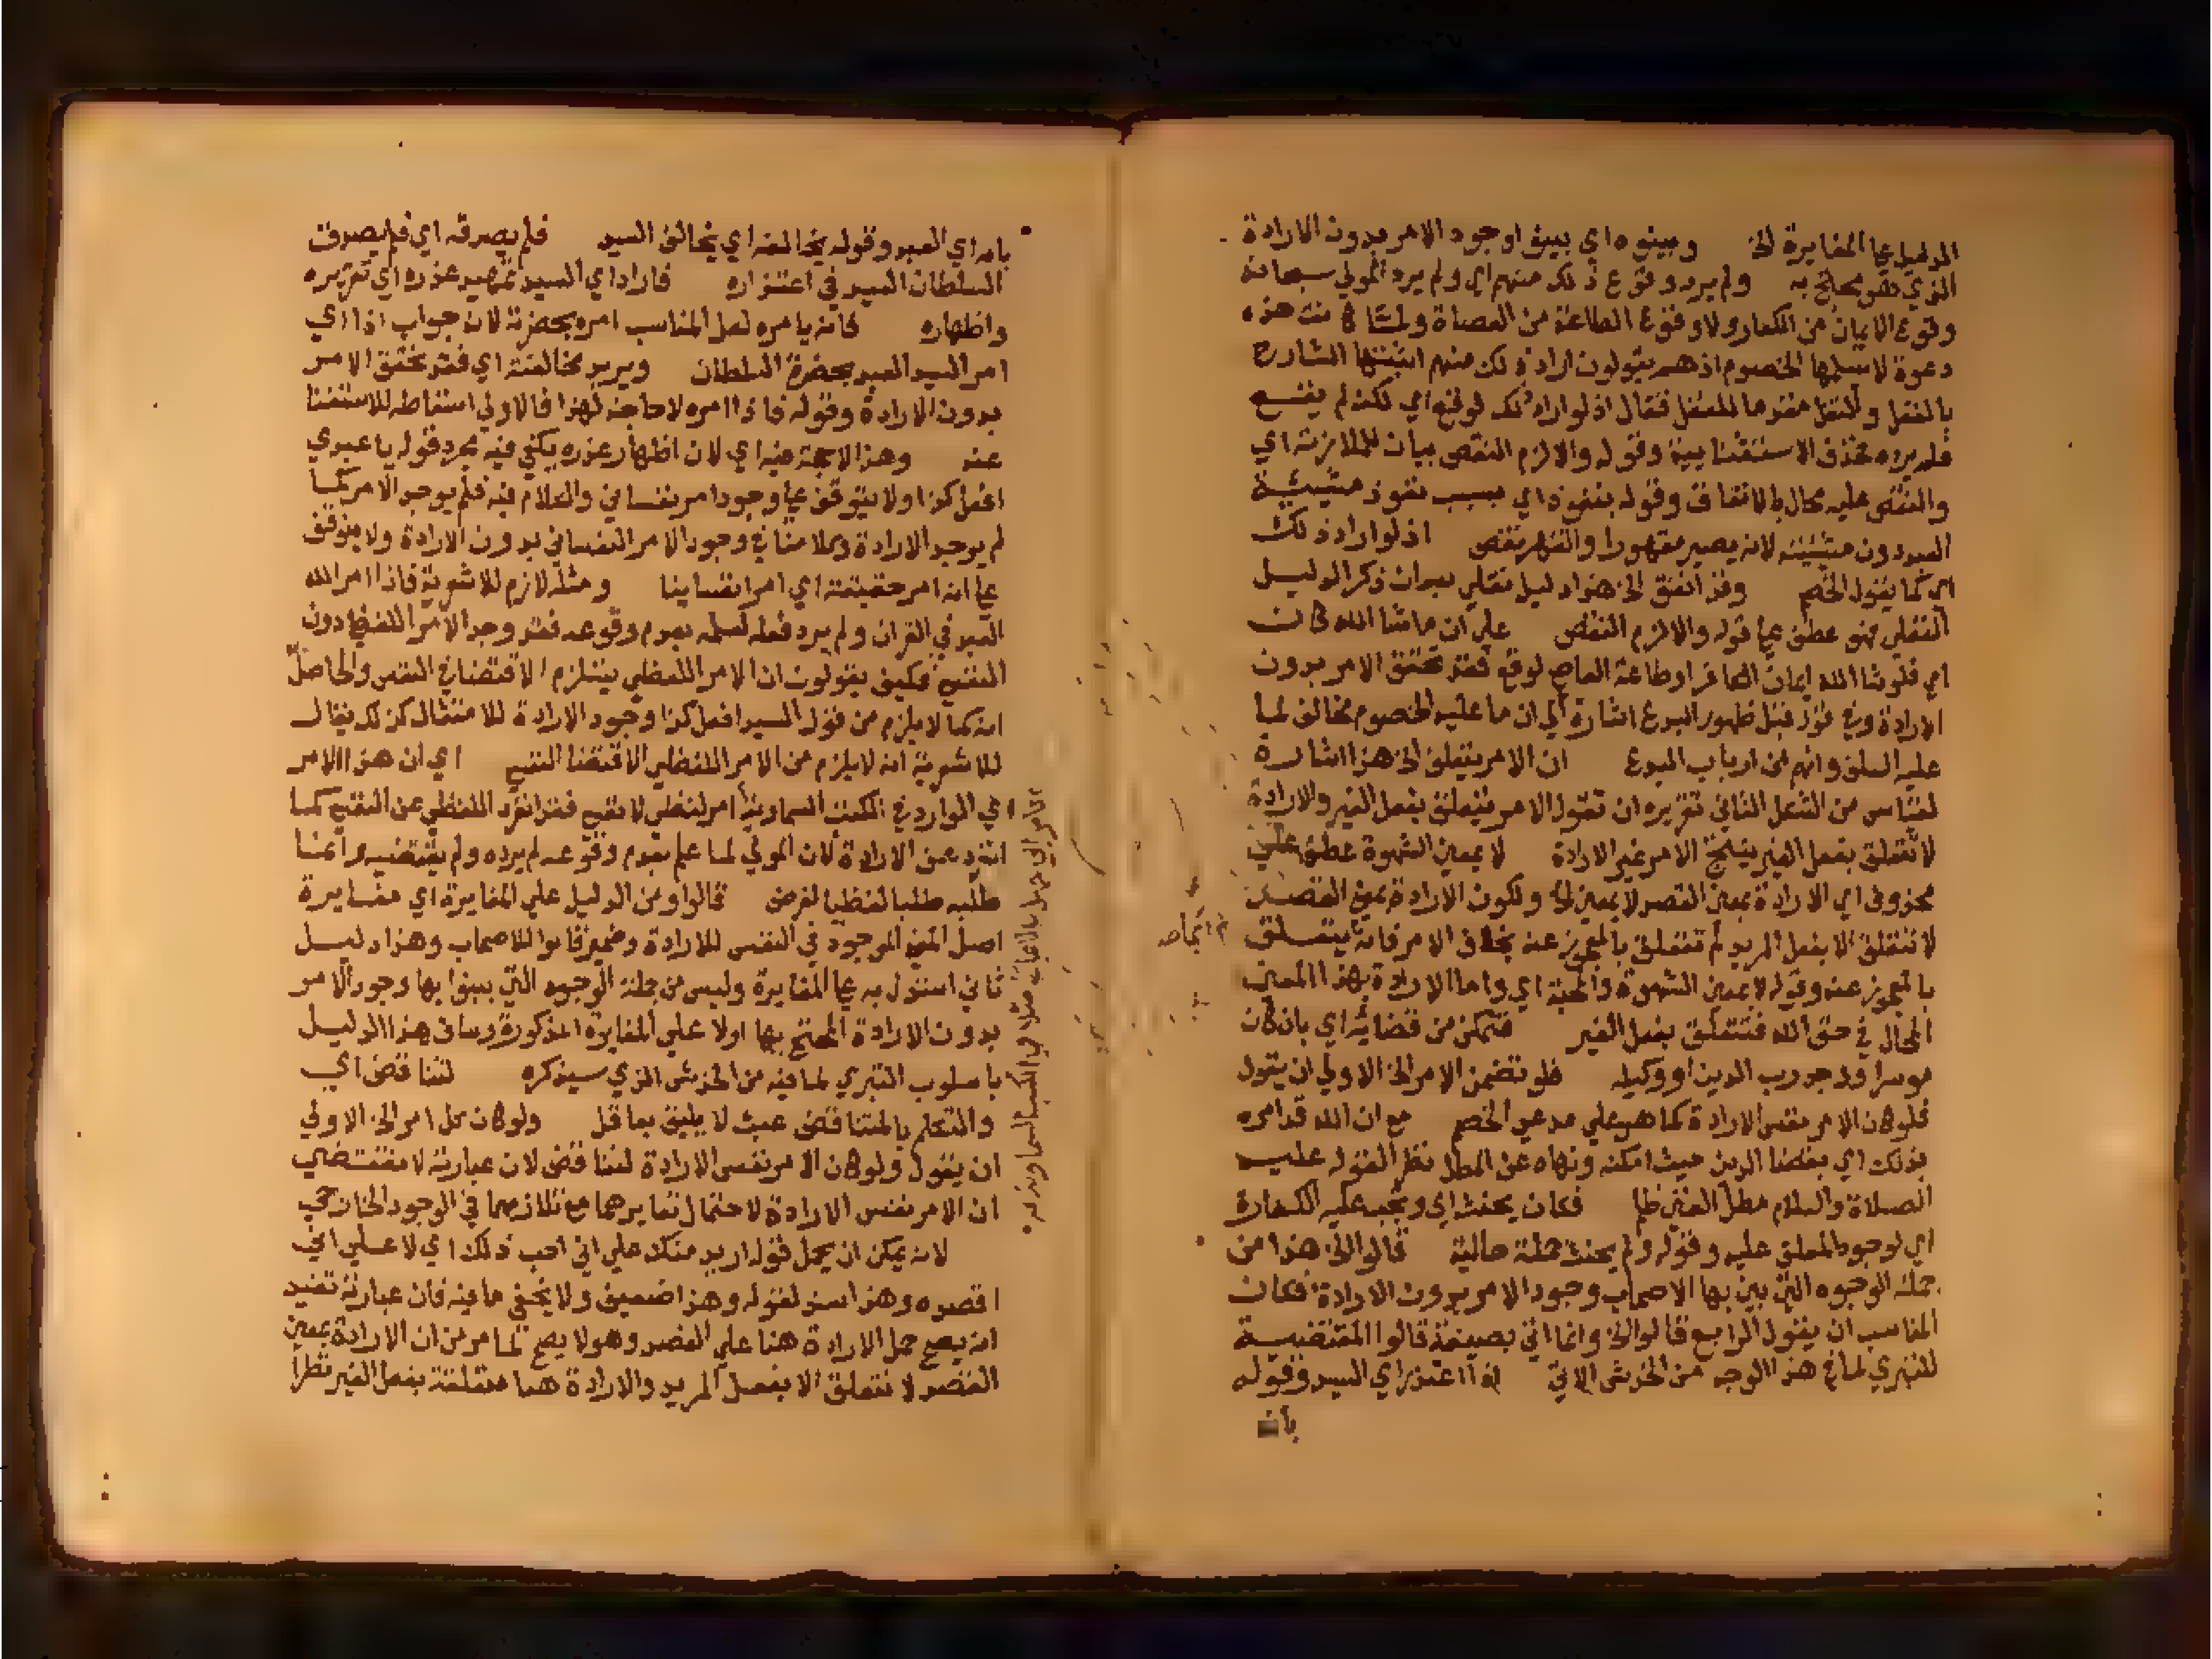 الدليل علي المغايرة الخ وبينوه اي بينوا وجود الامر بدون الارادة
الذي هو محتج به ولم يرد وقوع ذلك منهم اي ولم يرد المولي سبحانه
وقوع الايمان من الكفار ولا وقوع الطاعة من العصاة ولما كانت هذه
دعوة لا تسلمها الخصوم اذ هم يقولون اراد ذلك منهم اثبتها الشارح
بالعقل والنقل مقدما للعقل فقال اذ لو اراد ذلك لوقع اي لكنه لم يقع
فلم يرده فحذف الاستثنائية وقوله والا لزم النقص بيان للملازمة اي
والنقص عليه محال بالاتفاق وقوله بنفوذ اي بسبب نفوذ مشيئة
العبد دون مشيئته لانه يصير مقهورا والقهر نقص اذ لو اراد ذلك
اي كما يقول الخصم وقد اتفق الخ هذا دليل نقلي بعد ان ذكر الدليل
العقلي فهو عطف علي قوله والا لزم النقص علي ان ما شا الله كان
اي فلو شا الله ايمان الكافر او طاعة العاصي لوقع فقد تحقق الامر بدون
الارادة وفي قوله قبل ظهور البدع اشارة الي ان ما عليه الخصوم مخالف لما
عليه السلف وانهم من ارباب البدع ان الامر يتعلق الخ هذا اشارة
لقياس من الشكل الثاني تقريره ان تقول الامر يتعلق بفعل الغير والارادة
لا تتعلق بفعل الغير ينتج الامر غير الارادة لا بمعني الشهوة عطف علي
محذوف اي الارادة بمعني القصد لا بمعني الخ ولكون الارادة بمعني القصد
لا تتعلق الا بفعل المريد لم تتعلق بالمعجوز عنه بخلاف الامر فانه يتعلق
بالمعجوز عنه وقوله لا بمعني الشهوة والمحبة اي واما الارادة بهذا المعني
المحال في حق الله فتتعلق بفعل الغير فتمكن من قضائه اي بان كان
موسرا ووجد رب الدين او وكيله فلو تضمن الامر الخ الاولي ان يقول
فلو كان الامر نفس الارادة كما هي علي مدعي الخصم مع ان الله قد امره
بذلك اي بقضا الدين حيث امكنه ونهاه عن المطل نظرا لقوله عليه
الصلاة والسلام مطل الغني ظلم فكان يحنث اي ويجب عليه الكفارة
اي لوجود المعلق عليه وقوله ولم يحنث جملة حالية قالوا الخ هذا من
جملة الوجوه التي بين بها الاصحاب وجود الامر بدون الارادة فكان
المناسب ان يقول الرابع قالوا الخ وانما اتي بصيغة قالوا المقتضية
للتبري لما في هذا الوجه من الخدش الاتي اذا اعتذر اي السيد وقوله
بان
بامره اي العبد وقوله يخالفه اي يخالف السيد فلم يصدقه اي فلم يصدق
السلطان السيد في اعتذاره فاراد اي السيد تمهيد عذره اي تقريره
واظهاره فانه يامره لعل المناسب امره بحضرته لان جواب اذا اي
امر السيد العبد بحضرة السلطان ويريد مخالفته اي فقد تحقق الامر
بدون الارادة وقوله فاذا امره لا حاجة لهذا فالاولي اسقاطه للاستغنا
عنه وهذا لا حجة فيه اي لان اظهار عذره يكفي فيه مجرد قوله يا عبدي
افعل كذا ولا يتوقف علي وجود امر نفساني والكلام فيه فلم يوجد الامر كما
لم يوجد الارادة وكلامنا في وجود الامر النفساني بدون الارادة ولا يتوقف
علي انه امر حقيقة اي امرا نفسانيا ومثله لازم للاشعرية فاذا امر الله
العبد في القران ولم يرد فعله لعلمه بعدم وقوعه فقد وجد الامر اللفظي دون
النفسي فكيف يقولون ان الامر اللفظي يستلزم الاقتضا في النفس والحاصل
انه كما لا يلزم من قول السيد افعل كذا وجود الارادة للامتثال كذلك يقال
للاشعرية انه لا يلزم من الامر اللفظي الاقتضا النفسي اي ان هذا الامر
اي الوارد في الكتب السماوية امر لفظي لا نفسي فقد انفرد اللفظي عن النفسي كما
انفرد عن الارادة لان المولي لما علم بعدم وقوعه لم يرده ولم يقتضيه وانما
طلبه طلبا لفظيا لغرض قالوا ومن الدليل علي المغايرة اي مغايرة
اصل المعني الموجود في النفس للارادة وضمير قالوا للاصحاب وهذا دليل
ثاني استدل به علي المغايرة وليس من جملة الوجوه التي بينوا بها وجود الامر
بدون الارادة المحتج بها اولا علي المغايرة المذكورة وساق هذا الدليل
باسلوب التبري لما فيه من الخدش الذي سيذكره لتناقض اي
والتكلم بالمتناقض عبث لا يليق بعاقل ولو كان كل امر الخ الاولي
ان يقول ولو كان الامر نفس الارادة لتناقض لان عبارته لا تقتضي
ان الامر نفس الارادة لاحتمال تغايرهما مع تلازمهما في الوجود الخارجي
لانه يمكن ان يحمل قوله اريد منك علي اني احب ذلك اي لا علي اني
اقصده وهذا سند لقوله وهذا ضعيف ولا يخفي ما فيه فان عبارته تفيد
انه يصح حمل الارادة هنا علي القصد وهو لا يصح لما مر من ان الارادة بمعني
القصد لا تتعلق الا بفعل المريد والارادة هنا متعلقة بفعل الغير نظرا